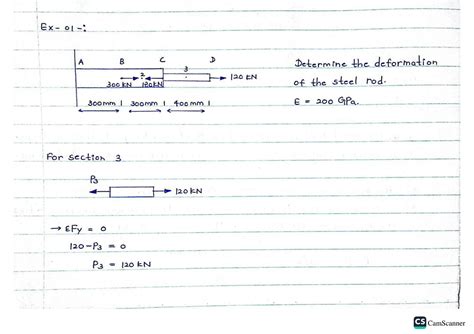 Ex-01-:
A B C D
2 3
300 KN 180KN 120 KN
300mm 300mm 400mm
Determine the deformation
of the steel rod.
E = 200 GPa.
For section 3
P3 120KN
→ ΣFy = 0
120-P3 = 0
P3 = 120 KN
CS CamScanner